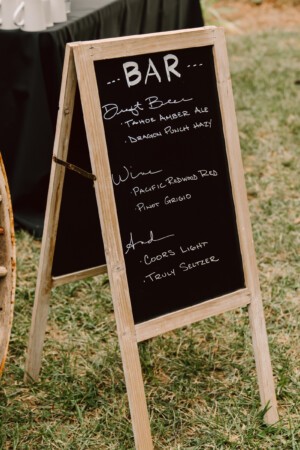 -- BAR --
Draft Beer
· TAHOE AMBER ALE
· DRAGON PUNCH HAZY
Wine
· PACIFIC REDWOOD RED
· PINOT GRIGIO
And
· COORS LIGHT
· TRULY SELTZER